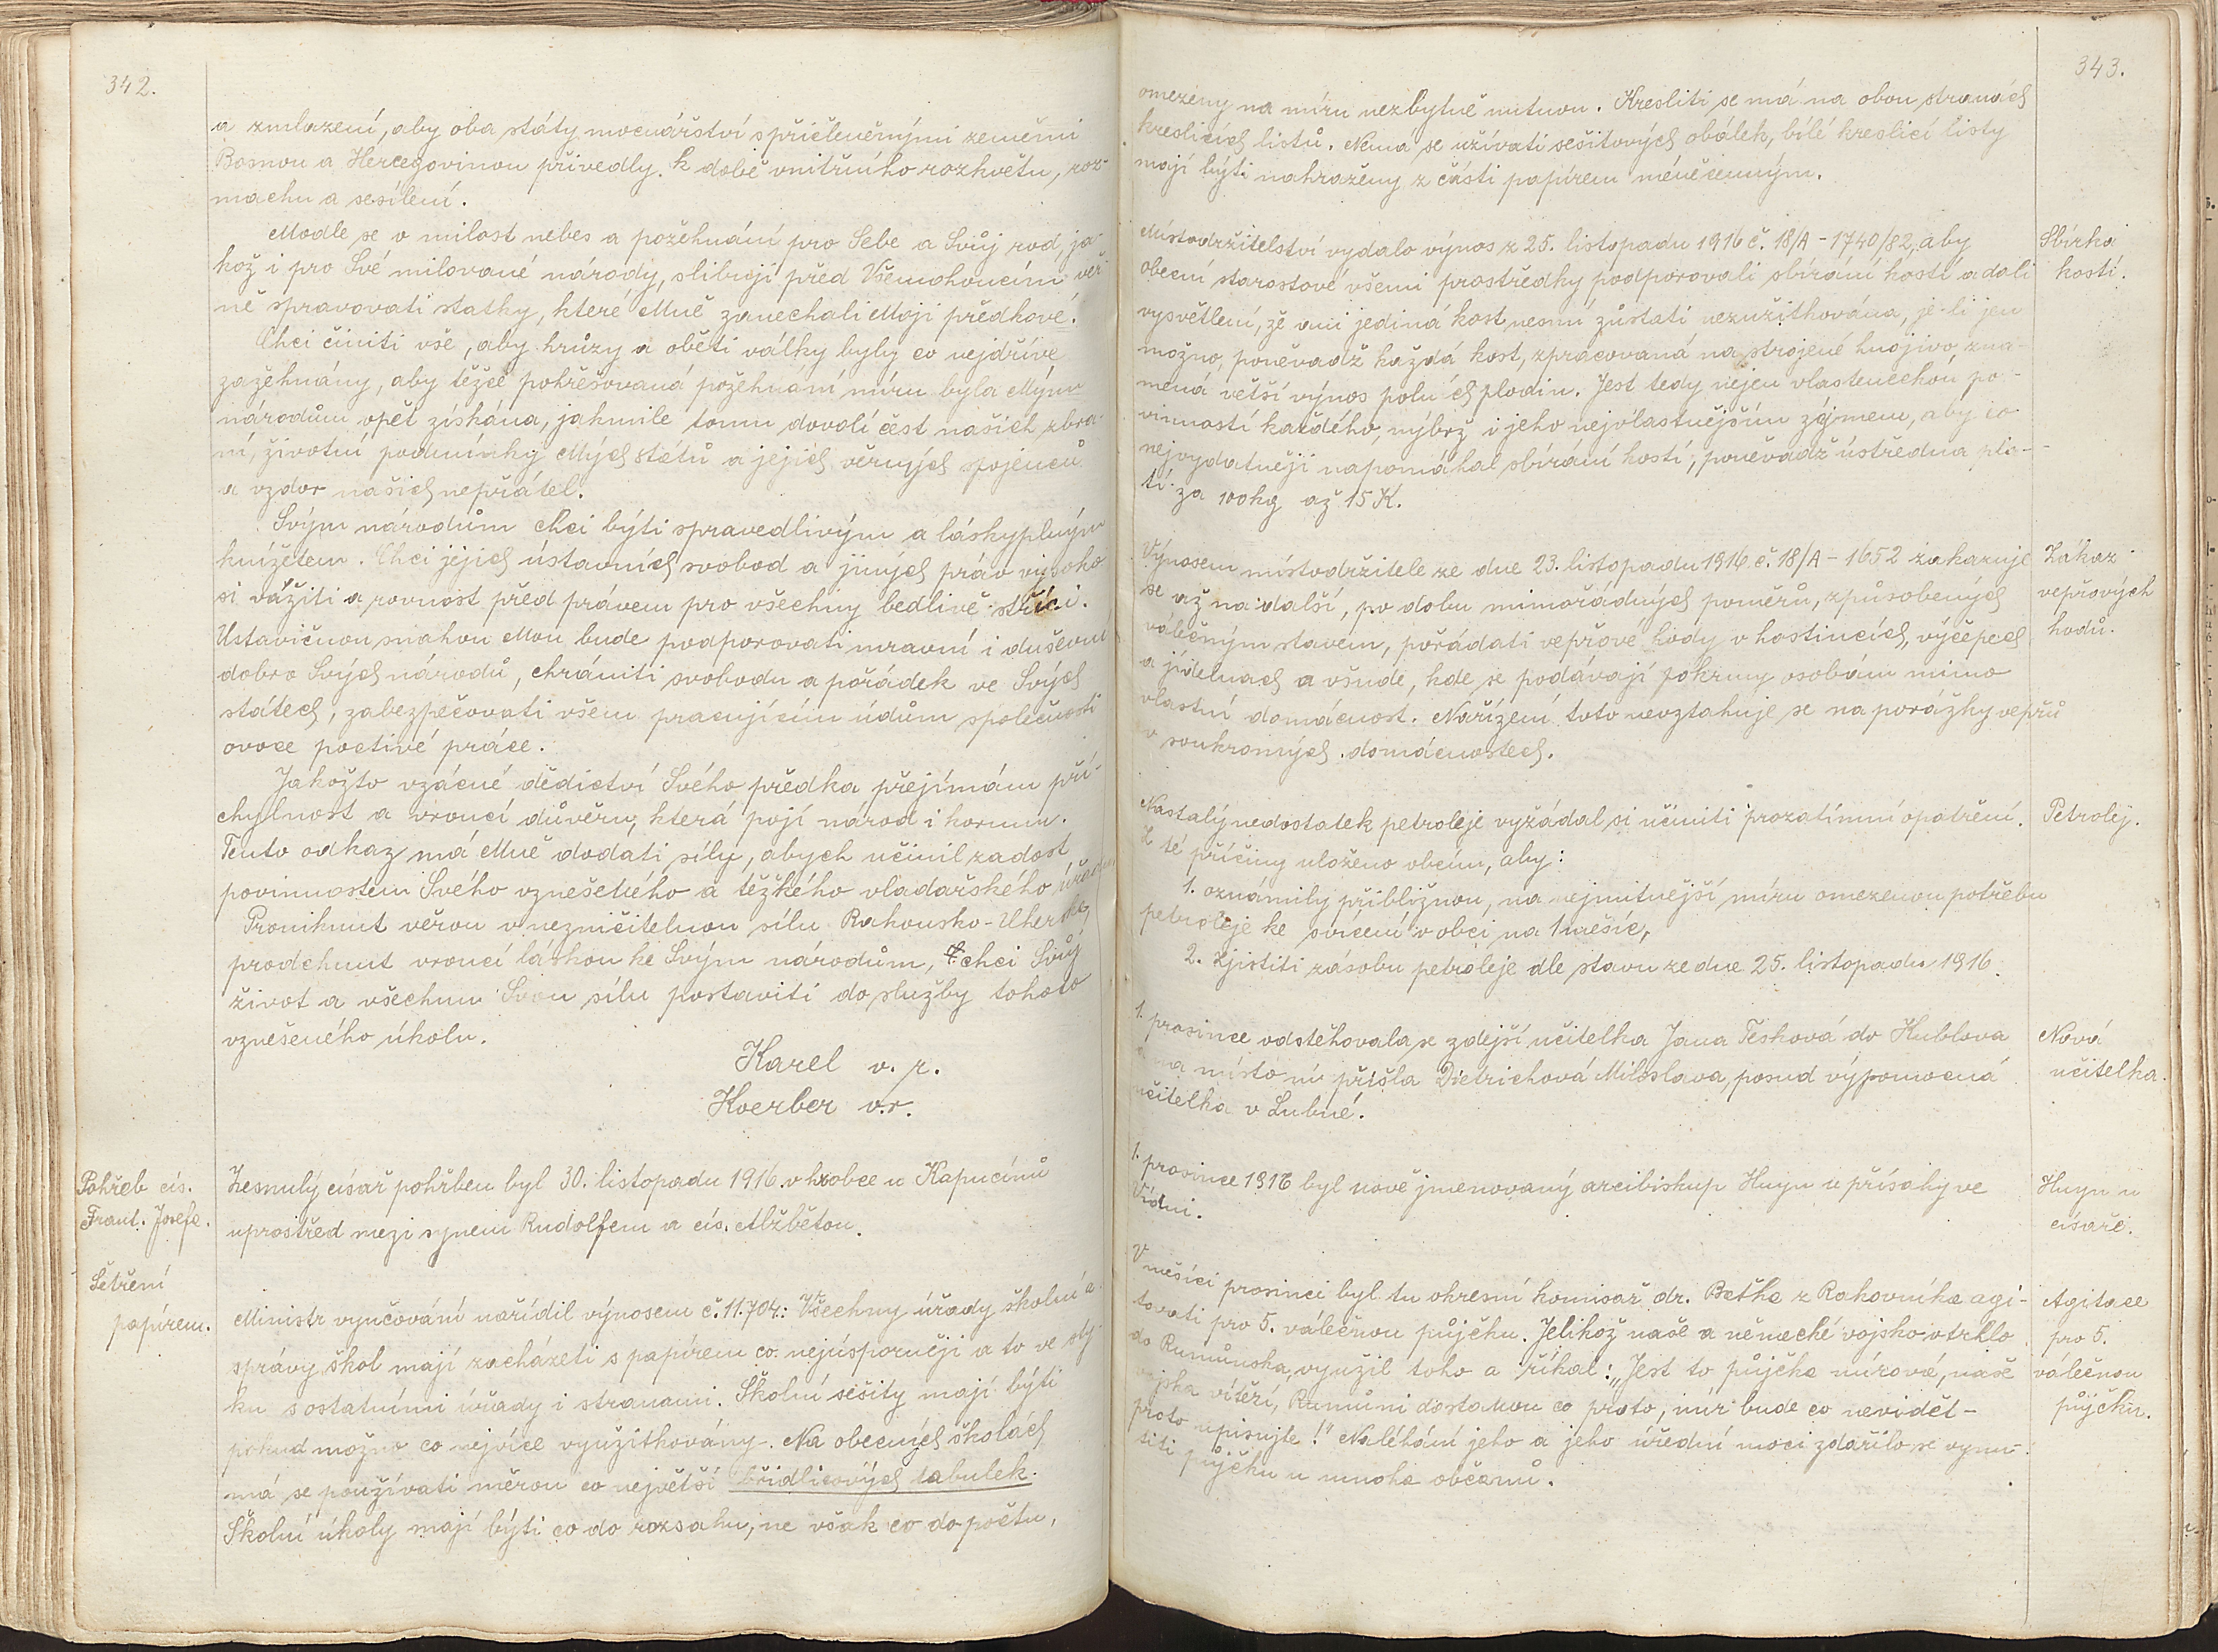 342.
a zmlazení, aby oba státy mocnářství s přičleněnými zeměmi
Bosnou a Hercegovinou přivedly k době vnitřního rozkvětu, roz-
machu a sesílení.
Modle se o milost nebes a požehnání pro Sebe a Svůj rod, ja-
kož i pro Své milované národy, slibuji před Všemohoucím věr-
ně spravovati statky, které Mně zanechali Moji předkové.
Chci činiti vše, aby hrůzy a oběti války byly co nejdříve
zažehnány, aby těžce pohřešovaná požehnání míru byla Mým
národům opět získána, jakmile tomu dovolí čest našich zbra-
ní, životní podmínky Mých států a jejich věrných spojenců
a vzdor našich nepřátel.
Svým národům chci býti spravedlivým a láskyplným
knížetem. Chci jejich ústavních svobod a jiných práv vysoko
si vážiti a rovnost před právem pro všechny bedlivě stříci.
Ustavičnou snahou Mou bude podporovati mravní i duševní
dobro Svých národů, chrániti svobodu a pořádek ve Svých
státech, zabezpečovati všem pracujícím údům společnosti
ovoce poctivé práce.
Jakožto vzácné dědictví Svého předka přejímám při-
chylnost a vroucí důvěru, která pojí národ i korunu.
Tento odkaz má Mně dodati síly, abych učinil zadost
povinnostem Svého vznešeného a těžkého vladařského úřadu.
Proniknut věrou v nezničitelnou sílu Rakousko-Uherska,
prodchnut vroucí láskou ke Svým národům, chci Svůj
život a všechnu Svou sílu postaviti do služby tohoto
vznešeného úkolu.
Karel v. r.
Koerber v.r.
Pohřeb cís.
Frant. Josefa.
Zesnulý císař pohřben byl 30. listopadu 1916 v hrobce u Kapucínů
uprostřed mezi synem Rudolfem a cís. Alžbětou.
Šetření
papírem.
Ministr vyučování nařídil výnosem č. 11.704.: Všechny úřady školní a
správy škol mají zacházeti s papírem co nejúsporněji a to ve sty-
ku s ostatními úřady i stranami. Školní sešity mají býti
pokud možno co nejvíce využitkovány. Na obecných školách
má se používati měrou co největší břidlicových tabulek.
Školní úkoly mají býti co do rozsahu, ne však co do počtu,
343.
omezeny na míru nezbytně nutnou. Kresliti se má na obou stranách
kreslicích listů. Nemá se užívati sešitových obálek, bílé kreslicí listy
mají býti nahraženy z části papírem méněcenným.
Sbírka
kostí.
Místodržitelství vydalo výnos z 25. listopadu 1916 č. 18/A - 1740/82, aby
obecní starostové všemi prostředky podporovali sbírání kostí a dali
vysvětlení, že ani jediná kost nesmí zůstati nezužitkována, je-li jen
možno, poněvadž každá kost, zpracovaná na strojené hnojivo, zna-
mená větší výnos polních plodin. Jest tedy nejen vlasteneckou po-
vinností každého, nýbrž i jeho nejvlastnějším zájmem, aby co
nejvydatněji napomáhal sbírání kostí, poněvadž ústředna pla-
tí za 100 kg až 15 K.
Zákaz
vepřových
hodů.
Výnosem místodržitele ze dne 23. listopadu 1916 č. 18/A - 1652 zakazuje
se až na další, po dobu mimořádných poměrů, způsobených
válečným stavem, pořádati vepřové hody v hostincích, výčepech
a jídelnách a všude, kde se podávají pokrmy osobám mimo
vlastní domácnost. Nařízení toto nevztahuje se na porážky vepřů
v soukromých domácnostech.
Petrolej.
Nastalý nedostatek petroleje vyžádal si učiniti prozatímní opatření.
Z té příčiny uloženo obcím, aby:
1. oznámily přibližnou, na nejmitnější míru omezenou potřebu
petroleje ke svícení v obci na 1 měsíc,
2. zjistiti zásobu petroleje dle stavu ze dne 25. listopadu 1916.
Nová
učitelka.
1. prosince odstěhovala se zdejší učitelka Jana Tesková do Kublova
a na místo ní přišla Dietrichová Miloslava, posud výpomocná
učitelka v Lubné.
Huyn u
císaře.
1. prosince 1916 byl nově jmenovaný arcibiskup Huyn u přísahy ve
Vídni.
Agitace
pro 5.
válečnou
půjčku.
V měsíci prosinci byl tu okresní komisař dr. Beťka z Rakovníka agi-
tovati pro 5. válečnou půjčku. Jelikož naše a německé vojsko vtrhlo
do Rumunska, využil toho a říkal: „Jest to půjčka mírová, naše
vojska vítězí, Rumuni dostanou co proto, mír bude co nevidět -
proto upisujte!" Naléhání jeho a jeho úřední moci zdařilo se vynu-
titi půjčku u mnoha občanů.